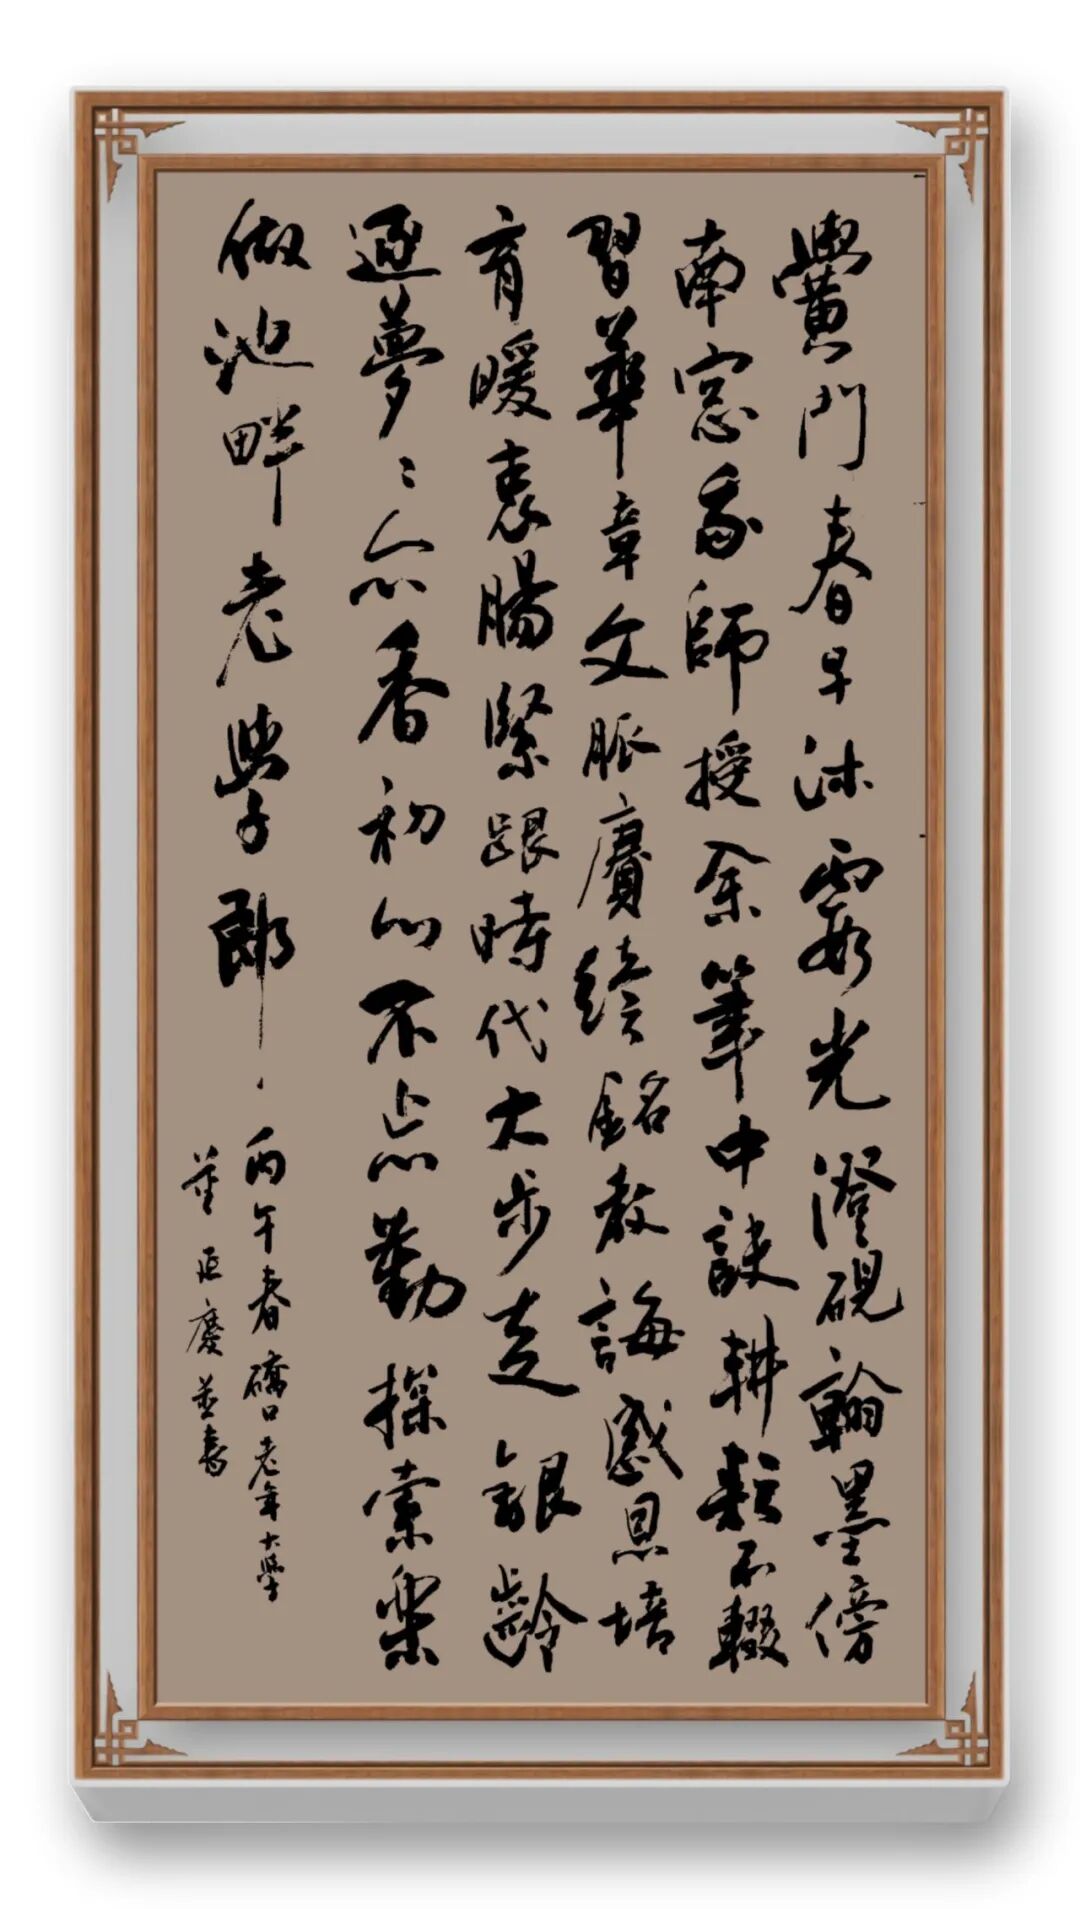 黌門春早沐霞光澄硯翰墨傍
南窓師授余筆中訣耕耘不輟
習華章文脈賡續銘教誨感恩培
育暖衷腸緊跟時代大步走銀齡
逐夢〻亦香初心不忘勤探索樂
做池畔老學郎
丙午春礄口老年大學
董慶並書